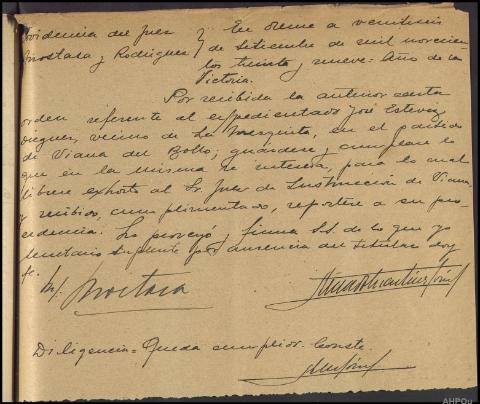 Providencia del Juez } En Orense a veintiseis
Mostaza y Rodriguez } de Setiembre de mil novecien-
tos treinta y nueve = Año de la
Victoria.
Por recibida la anterior carta
orden referente al expedientado José Estevez
Dieguez, vecino de La Mezquita, en el partido
de Viana del Bollo; guardese y cumplase lo
que en la misma se interesa, para lo cual
librese exhorto al Sr. Juez de Instrucción de Viana
y recibido, cumplimentado, reportese a su pro-
cedencia. Lo proveyó y firma S.S. de lo que yo
Secretario suplente por ausencia del titular doy
fe.
Mostaza
Diligencia = Queda cumplido. Conste.
AHPOu